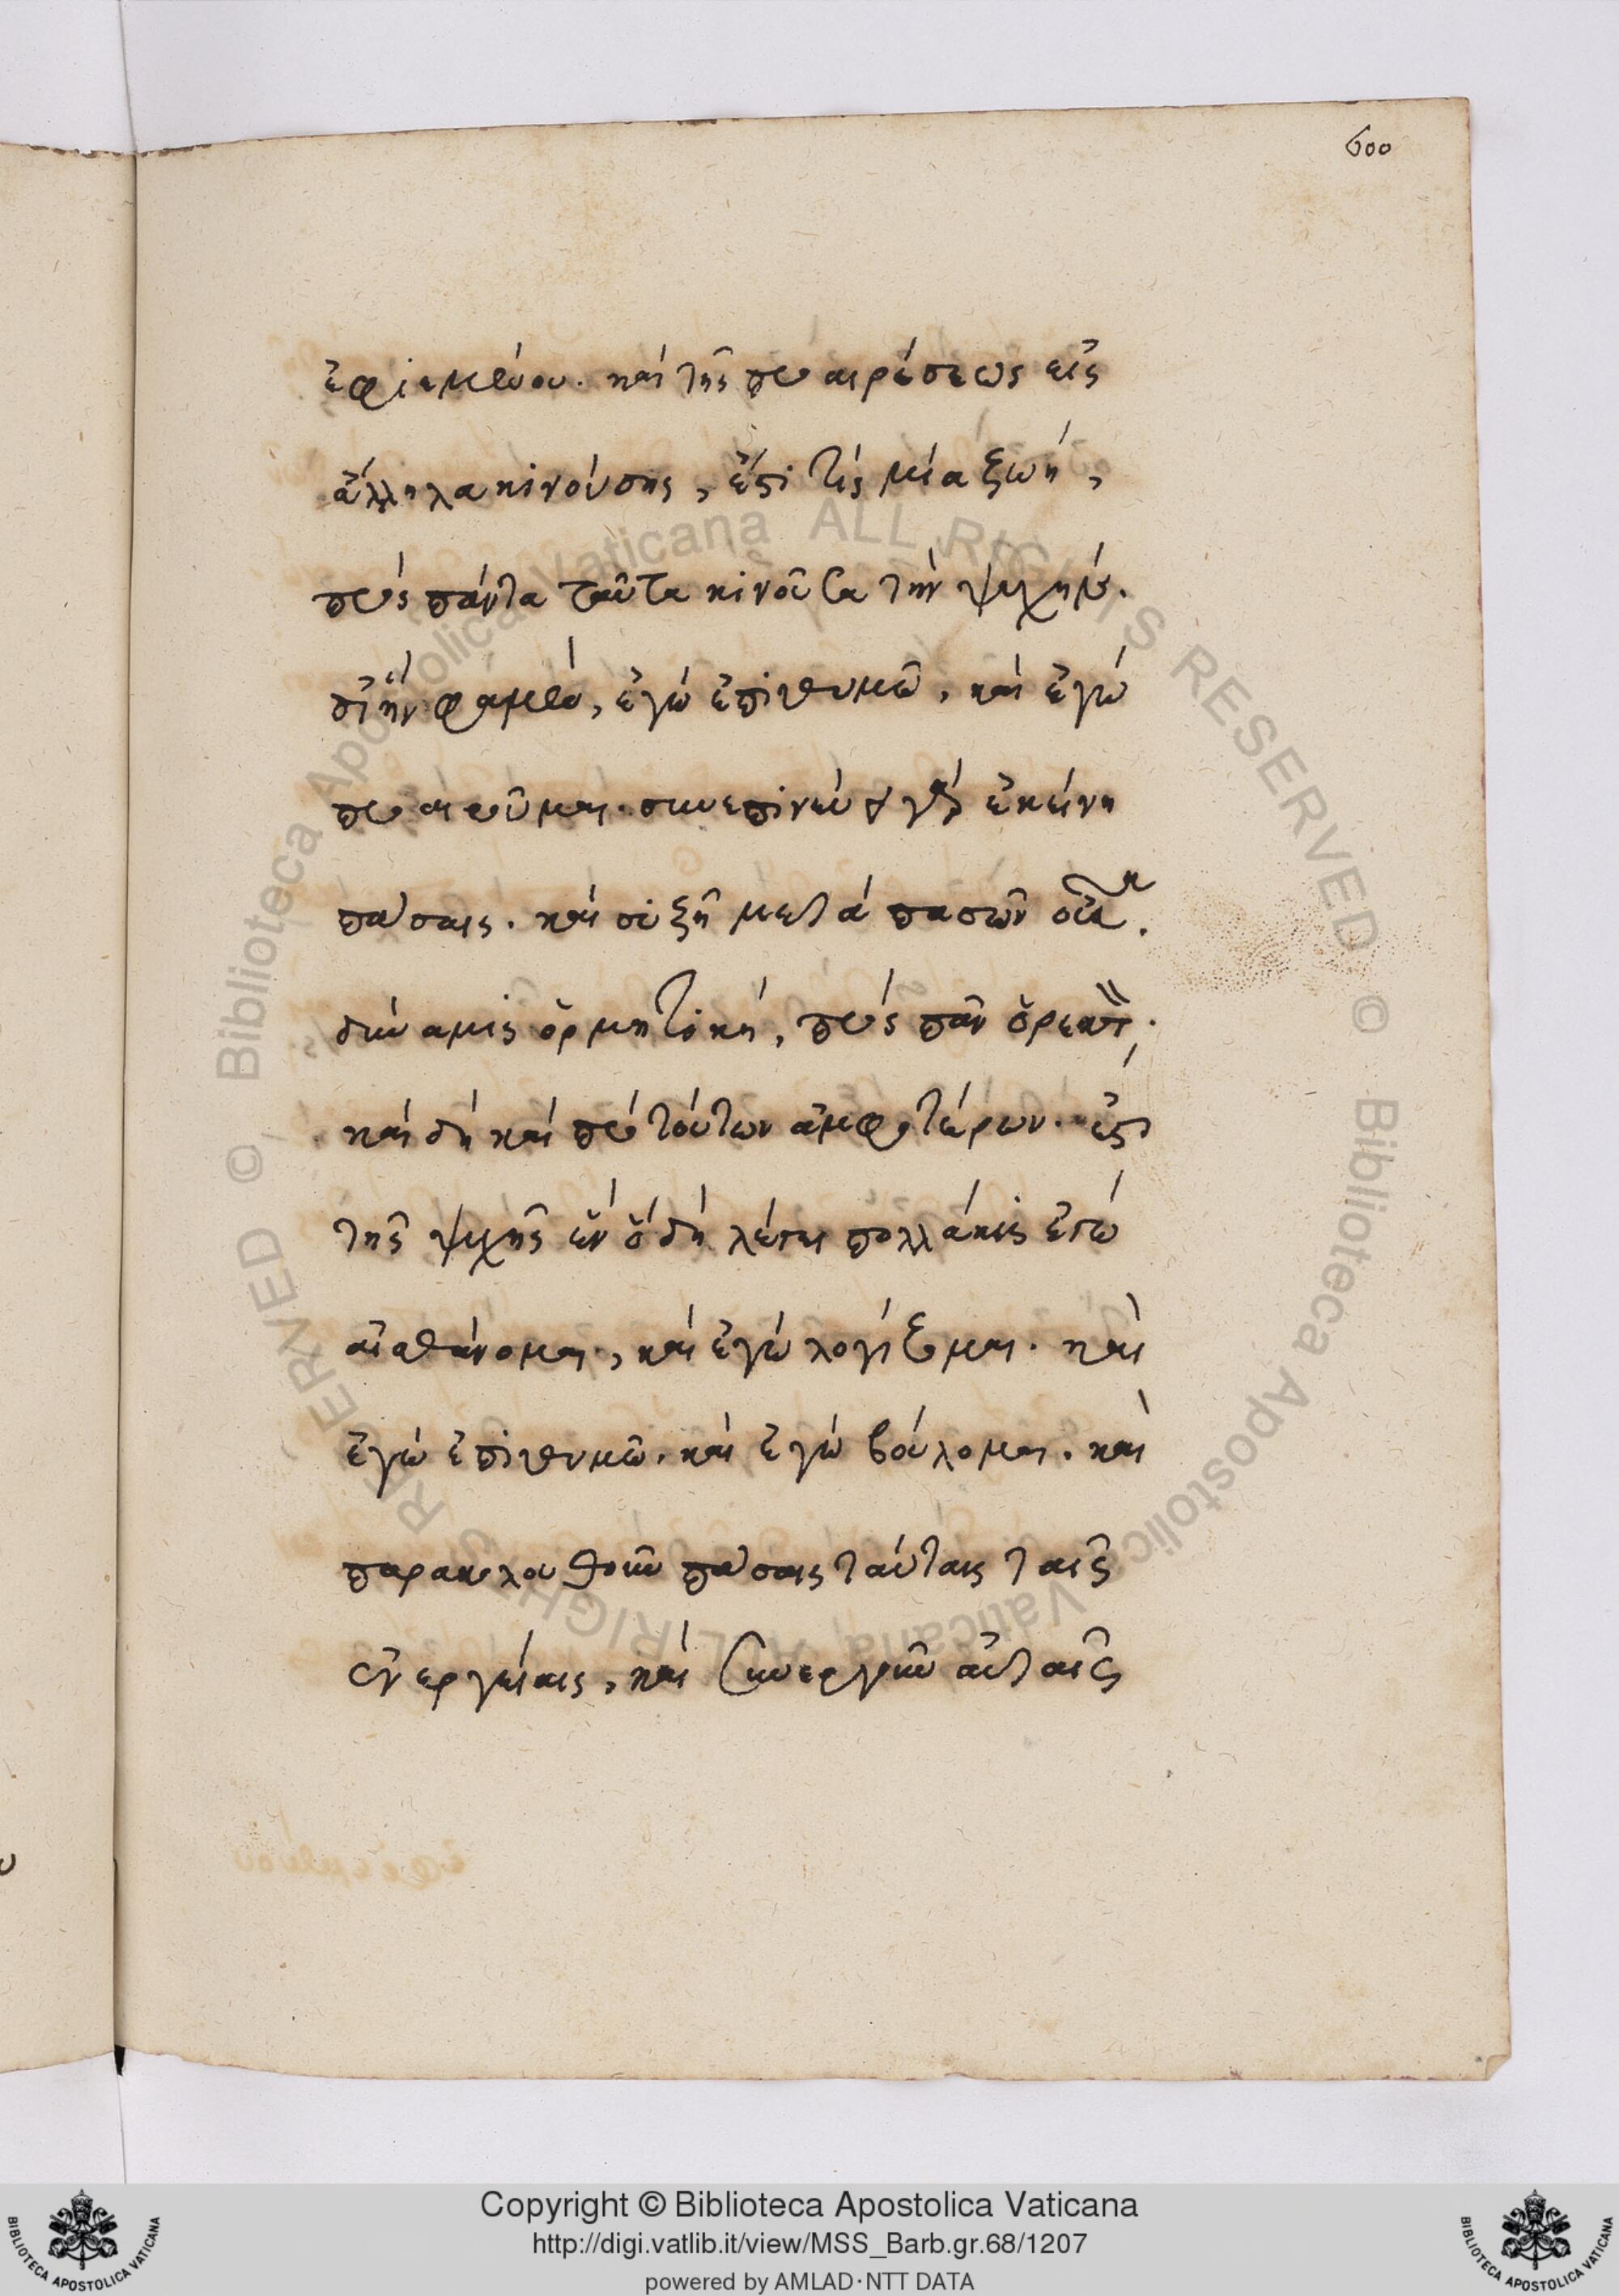 600
ἐφιεμένου. καὶ τῆς προαιρέσεως εἰς
ἄλληλα κινούσης, ἔστι τίς μία ζωὴ,
πρὸς πάντα ταῦτα κινοῦσα τὴν ψυχήν.
δι' ἣν φαμὲν, ἐγὼ ἐπιθυμῶ, καὶ ἐγὼ
προαιροῦμαι. συνεπινεύει γὰρ ἐκείνη
πάσαις. καὶ συζῆ μετὰ πασῶν οὖσα.
δύναμις ὁρμητικὴ, πρὸς πᾶν ὀρεκτόν.
καὶ δὴ καὶ πρὸ τούτων ἀμφοτέρων. ἐστὶ
τῆς ψυχῆς ἓν ὃ δὴ λέγει πολλάκις ἐγὼ
αἰσθάνομαι, καὶ ἐγὼ λογίζομαι. καὶ
ἐγὼ ἐπιθυμῶ. καὶ ἐγὼ βούλομαι. καὶ
παρακολουθοῦν πάσαις ταύταις ταῖς
ἐνεργείαις, καὶ συνεργοῦν αὐταῖς
Biblioteca Apostolica Vaticana ALL RIGHTS RESERVED ©
Biblioteca Apostolica Vaticana ALL RIGHTS RESERVED ©
Copyright © Biblioteca Apostolica Vaticana
http://digi.vatlib.it/view/MSS_Barb.gr.68/1207
powered by AMLAD·NTT DATA
BIBLIOTECA APOSTOLICA VATICANA
BIBLIOTECA APOSTOLICA VATICANA